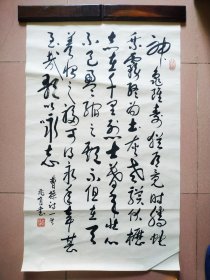 神龜雖壽猶有竟時騰蛇
乘霧終為土灰老驥伏櫪
志在千里烈士暮年壯心
不已盈縮之期不但在天
養怡之福可得永年幸甚
至哉歌以詠志
曹操詩一首
書